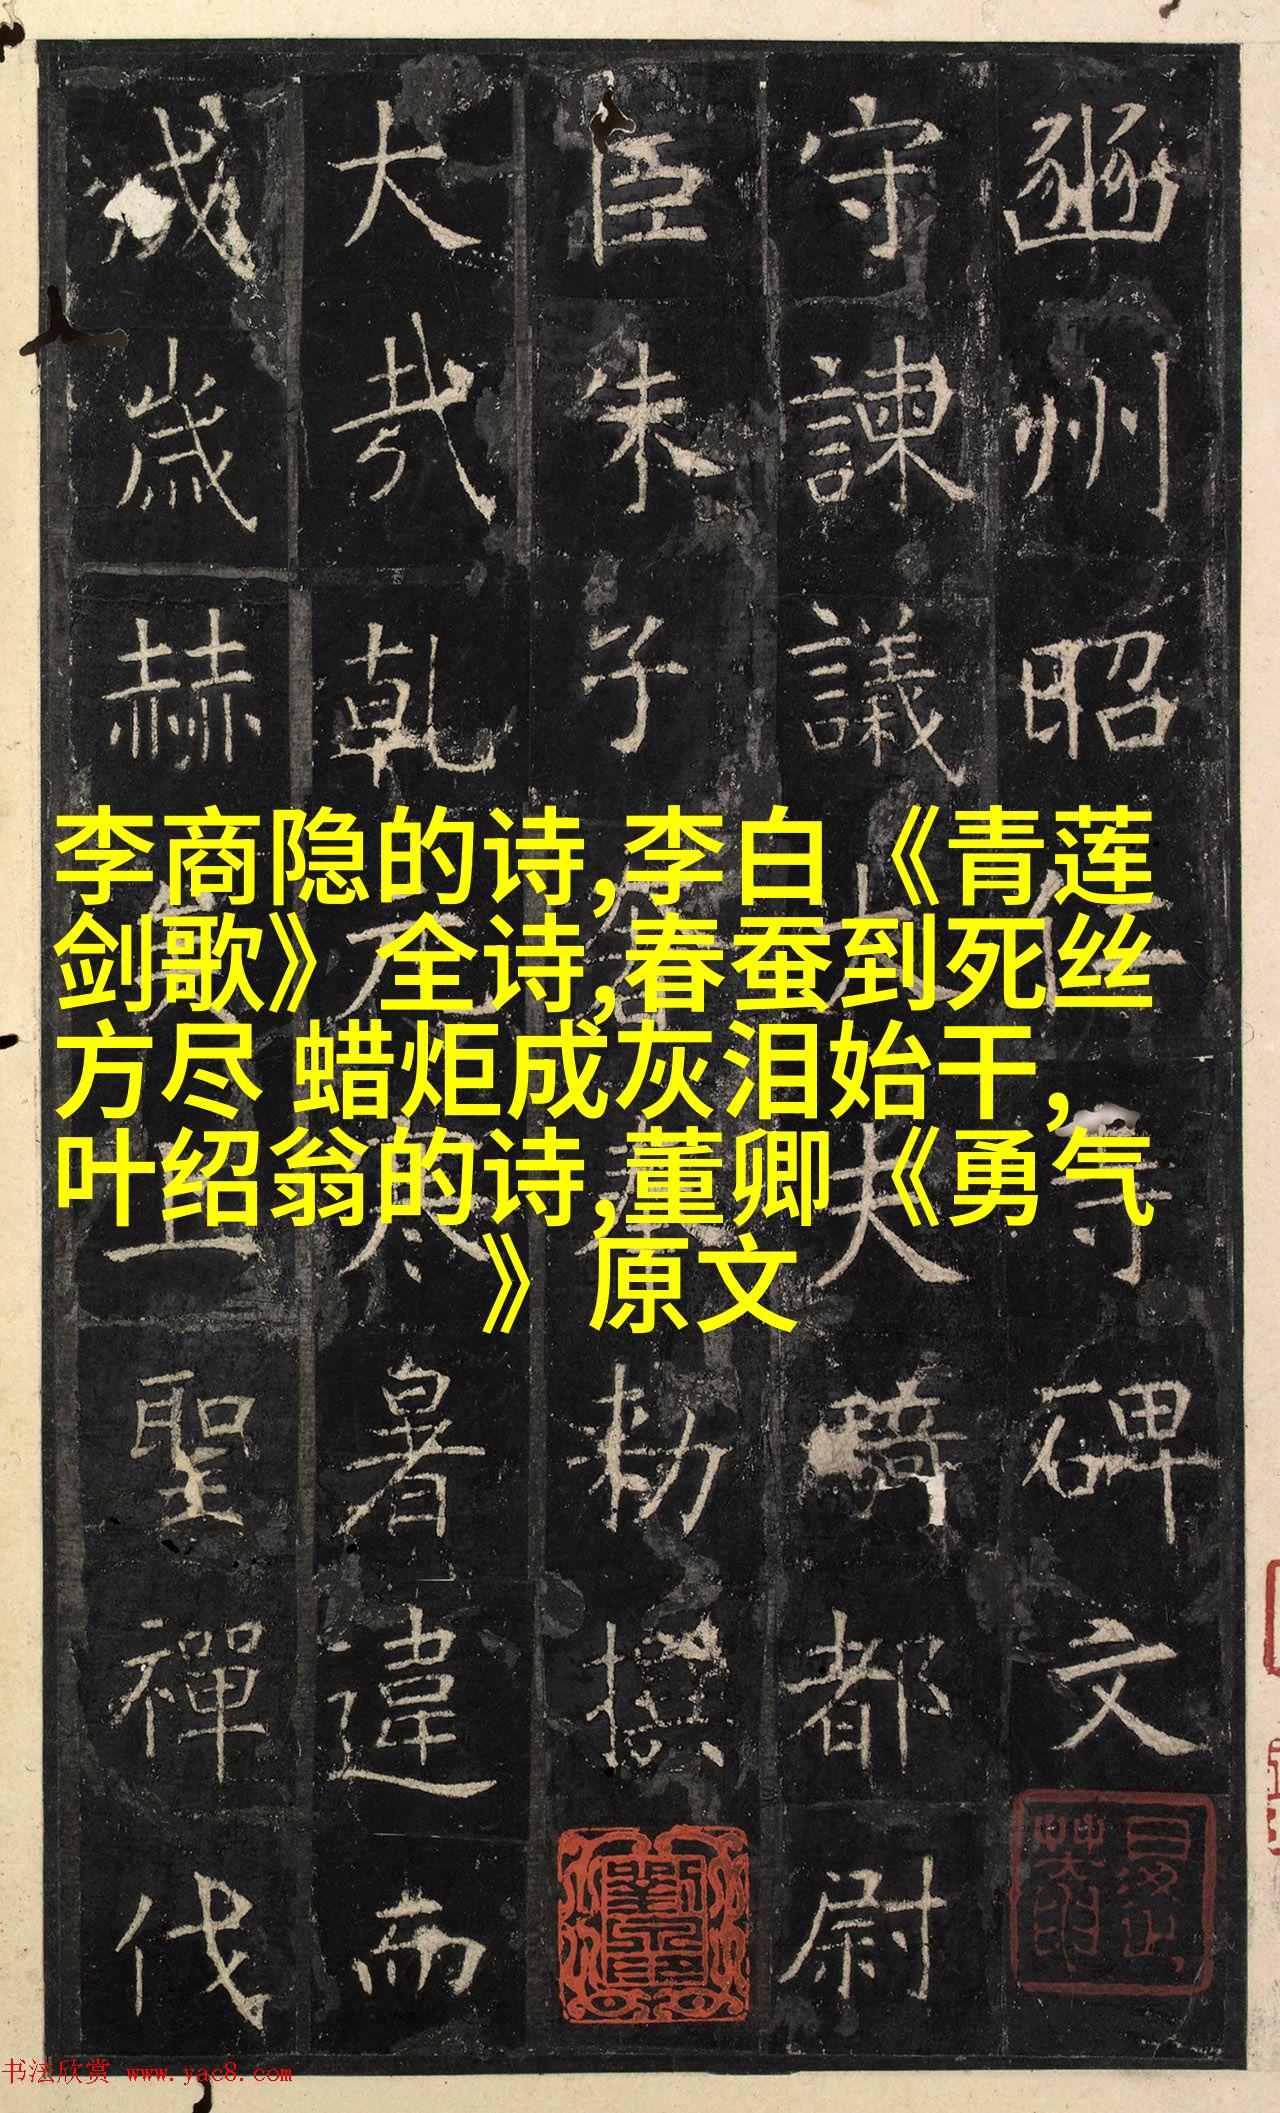 豳州昭仁寺碑文
守諫議大夫騎都尉
臣朱子奢奉勅撰
大哉乾元寒暑違而
成歲赫矣上聖禪代
李商隐的诗,李白《青莲
剑歌》全诗,春蚕到死丝
方尽 蜡炬成灰泪始干,
叶绍翁的诗,董卿《勇气
》原文
书法欣赏 www.yac8.com